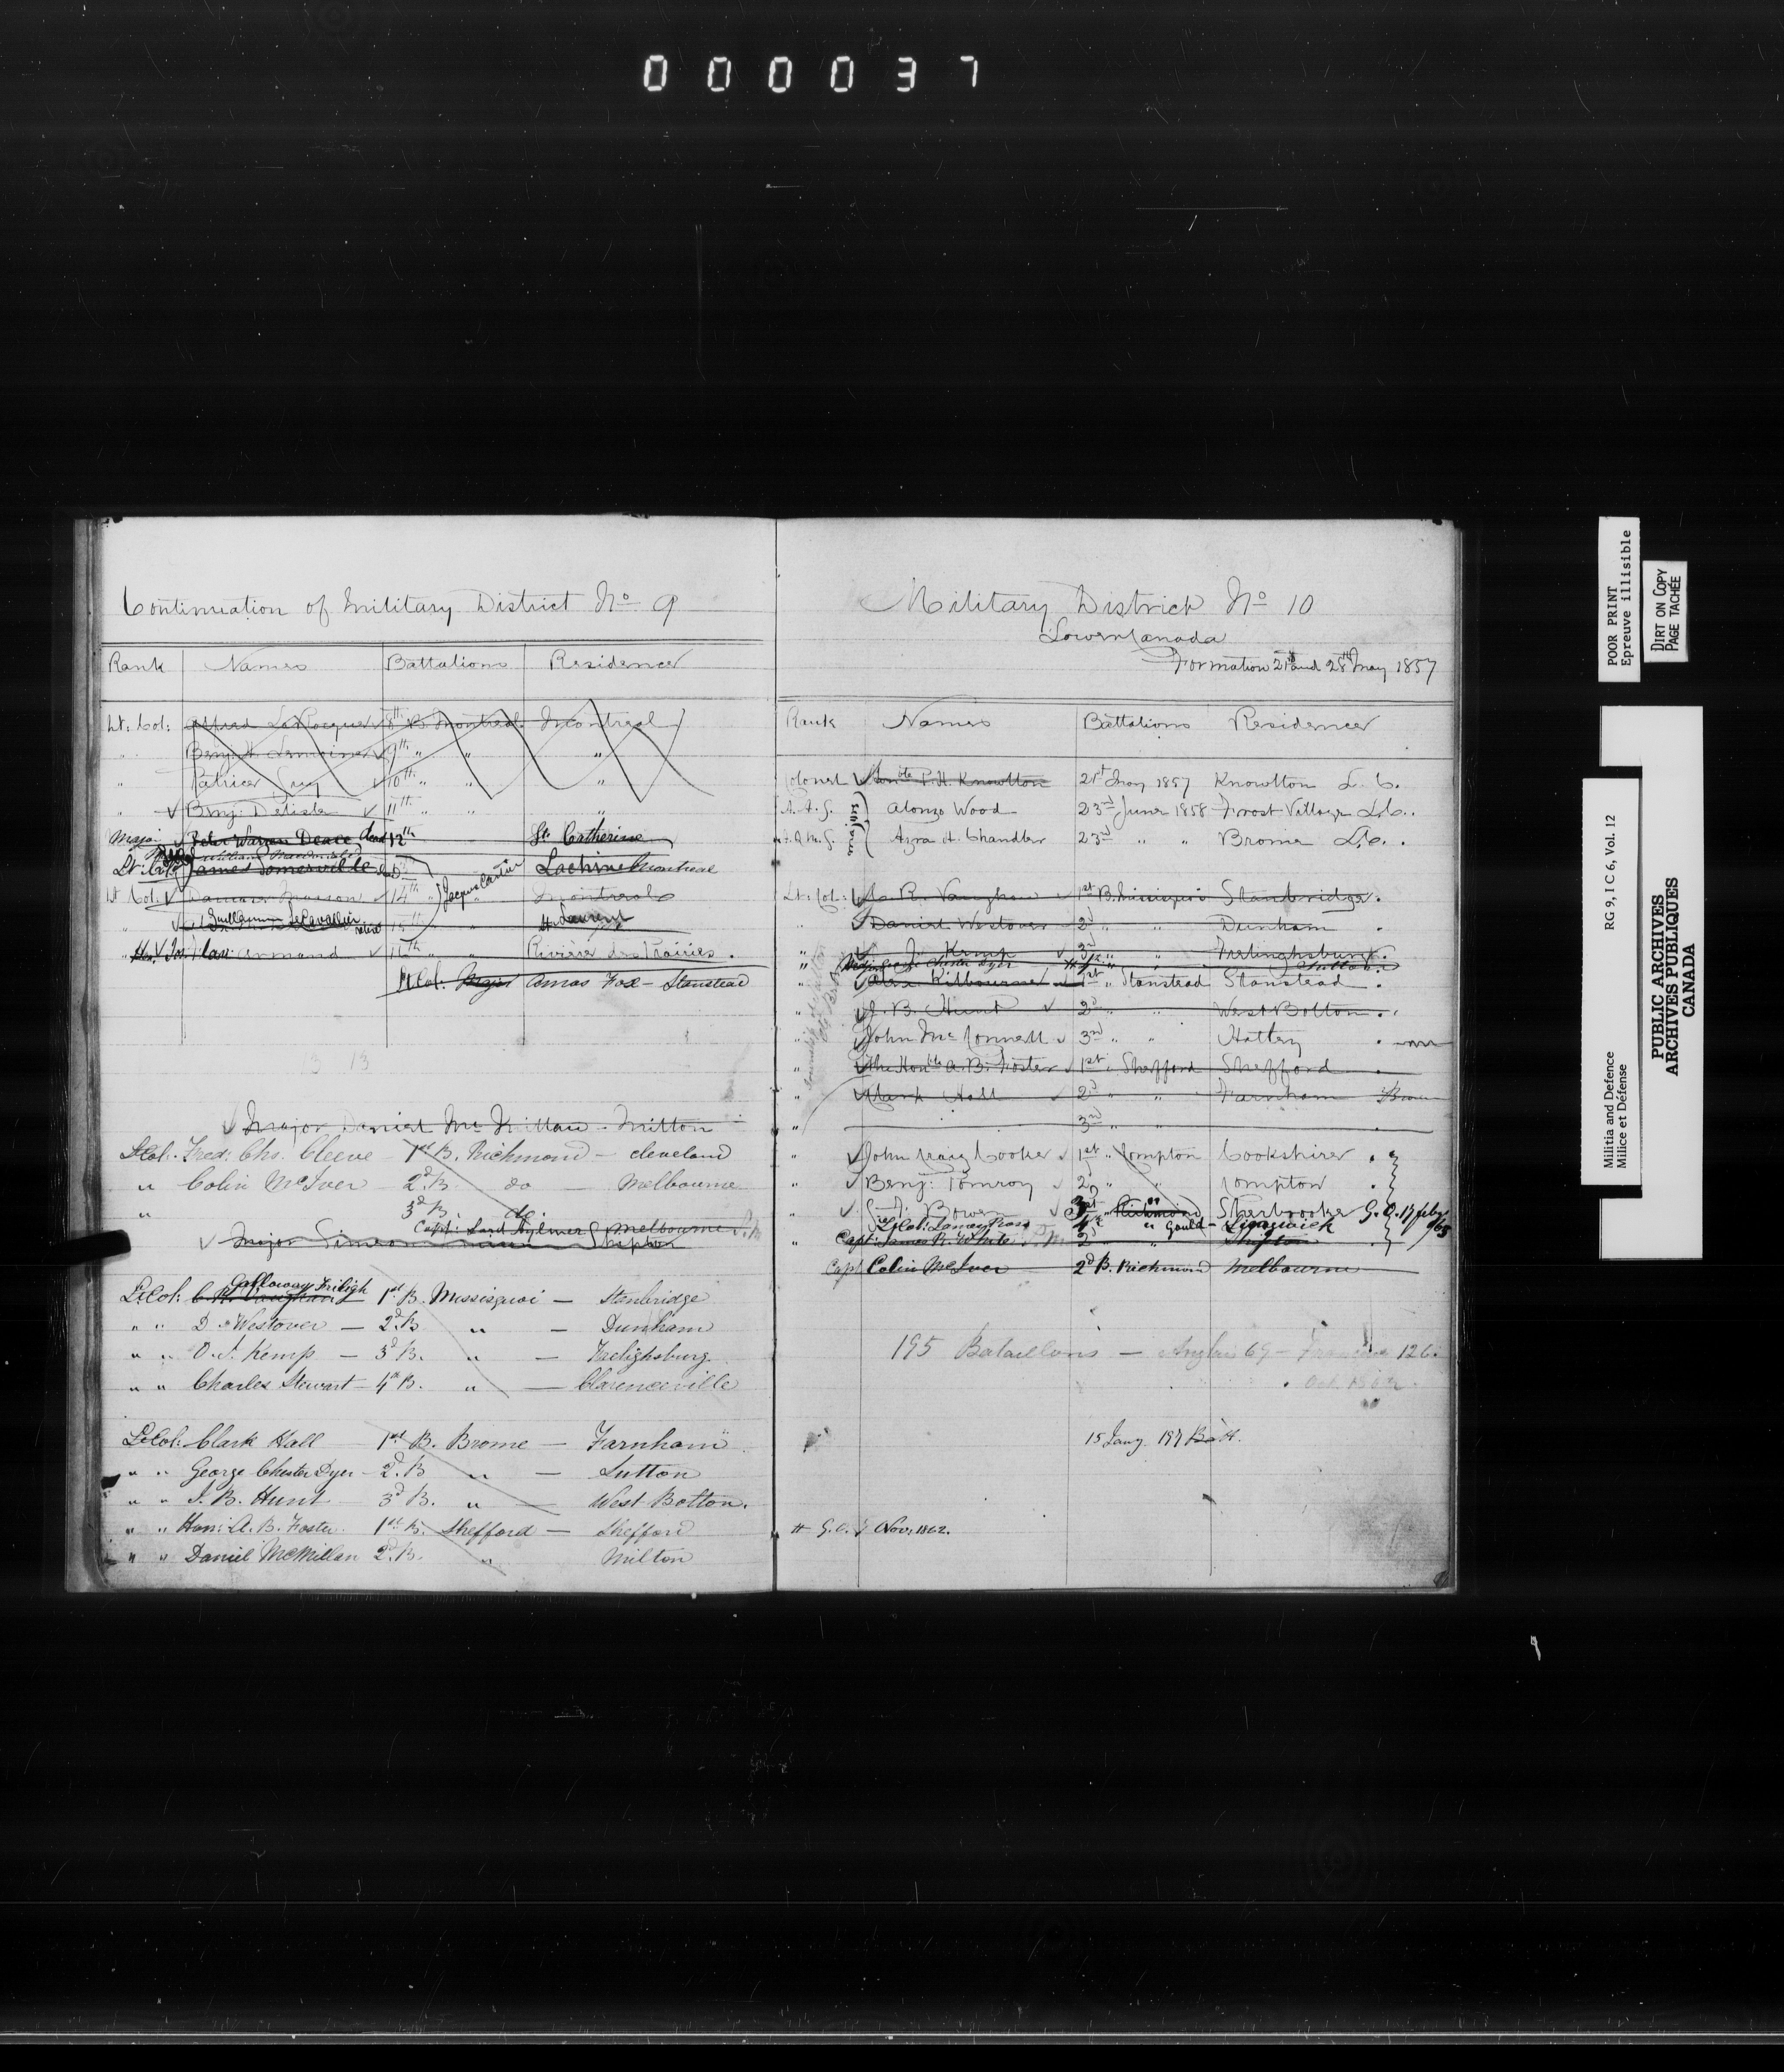 000037
Continuation of Military District No 9
Rank Names Battalions Residences
Lt: Col: Alfred LaRocque 8th B. Montreal Montreal
" Benj: H. Lemoine 9th " " "
" Patrice Guy 10th " " "
" Benj: Delisle 11th " " "
Major Peter Warren Dease dead 12th St. Catherine
Lt: Col: James Somerville Lachine Montreal
Lt Col: Damase Masson 14th " Jacques Cartier " Montreal
" Guillaume LeCavallier retired 15th " St Laurent
" Armand 16th " " Rivière des Prairies.
Lt Col: Major Amos Fox - Stanstead
Major Daniel McMillan - Milton
Lt Col: Fred: Chs. Cleeve - 1st B. Richmond - Cleveland
" Colin McIver - 2d. B. do - Melbourne
" 3d B. do.
Capt: Lord Aylmer Melbourne
Major Simeon Shipton
Galloway Freligh
Lt Col: C. R. Vaughan 1st B. Missisquoi - Stanbridge
" " D. Westover - 2d. B " - Dunham
" " O. J. Kemp - 3d B. " - Frelighsburg.
" " Charles Stewart - 4th B. " - Clarenceville
Lt Col: Clark Hall - 1st B. Brome - Farnham
" " George Chester Dyer - 2d. B " - Sutton
" " J. B. Hunt - 3d B. " - West Bolton.
" " Hon: A. B. Foster 1st B. Shefford - Shefford
" " Daniel McMillan 2d. B. " Milton
Military District No 10
Lower Canada
Formation 21st and 28th May 1857
Rank Names Battalions Residences
Colonel Honble P. H. Knowlton 21st May 1857 Knowlton L. C.
A. A. G. Majors Alonzo Wood 23rd June 1858 Frost Village L.C.
A. Q. M. G. Azra H. Chandler 23rd " " Brome L.C.
Lt: Col: R. Vaughan 1st B. Missisquoi Stanbridge.
" Daniel Westover 2d " " Dunham
" J. Kemp 3rd " " Frelinghsburg.
" Major George Chester Dyer # 4th " Sutton
" Alex Kilbourne 1st " Stanstead Stanstead
" J. B. Hunt 2d " " West Bolton.
" John McConnell 3rd " " Hatley
" The Honble A. B. Foster 1st " Shefford Shefford
" Clark Hall 2d " " Farnham Brome
" 3rd " "
" John Craig Cooke 1st " Compton Cookshire
" Benj: Pomroy 2d " " Compton
" Bowen 3rd " Richmond Sherbrooke G.O. 17 feby /63
Lt Col: Ross 4th " Gould - Lingwick
" Capt: James R. White 2d " Shipton
Capt Colin McIver 2d B. Richmond Melbourne
195 Bataillons - Anglais 69 - Français 126.
Oct. 1862.
15 Jany. 197 Batt.
# G. O. 7 Nov. 1862.
POOR PRINT
Epreuve illisible
DIRT ON COPY
PAGE TACHÉE
Militia and Defence RG 9, I C 6, Vol. 12
Milice et Défense
PUBLIC ARCHIVES
ARCHIVES PUBLIQUES
CANADA